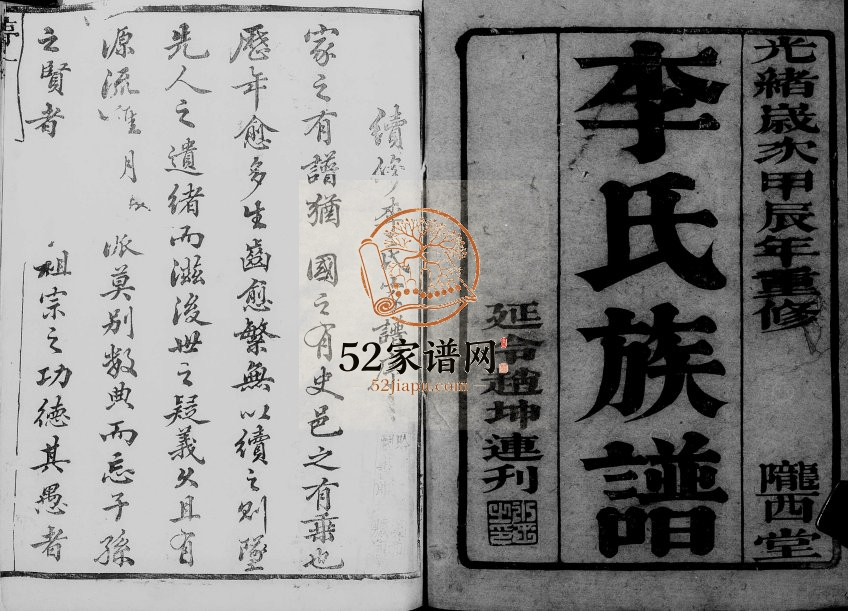 光緒歲次甲辰年重修
隴西堂
李氏族譜
延令趙坤連刊
續修李氏宗譜序
家之有譜猶國之有史邑之有乘也
歷年愈多生齒愈繁無以續之則墜
先人之遺緒而滋後世之疑義久且有
源流
派莫別數典而忘子孫
之賢者
祖宗之功德其愚者
52家谱网
52jiapu.com